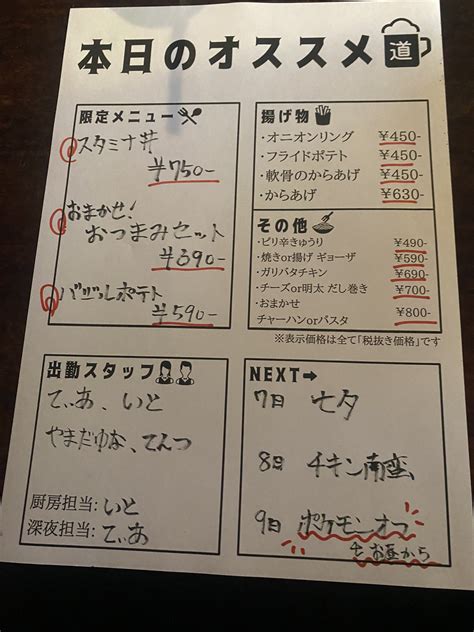 本日のオススメ 道
限定メニュー
スタミナ丼
¥750-
おまかせ!
おつまみセット
¥390-
バジルポテト
¥590-
揚げ物
・オニオンリング ¥450-
・フライドポテト ¥450-
・軟骨のからあげ ¥450-
・からあげ ¥630-
その他
・ピリ辛きゅうり ¥490-
・焼きor揚げ ギョーザ ¥590-
・ガリバタチキン ¥690-
・チーズor明太 だし巻き ¥700-
・おまかせ
チャーハンorパスタ ¥800-
※表示価格は全て「税抜き価格」です
出勤スタッフ
てぃあ、いと
やまだゆな、てんつ
厨房担当: いと
深夜担当: てぃあ
NEXT→
7日 七夕
8日 チキン南蛮
9日 ポケモンオフ
お昼から